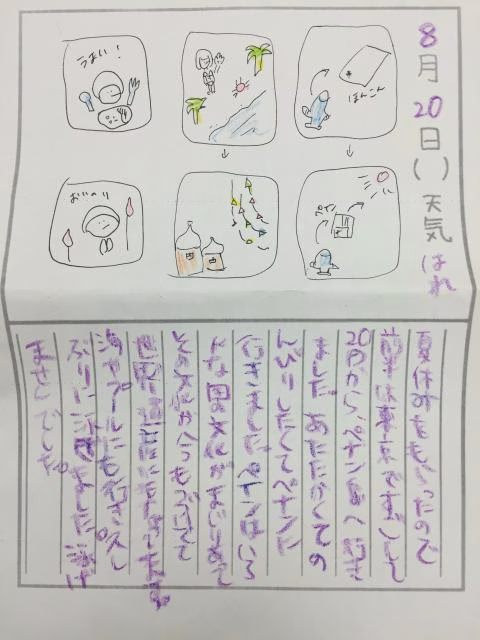 8月20日( ) 天気 はれ
ほんこん
うまい!
おいのり
夏休みをもらったので
前半は東京ですごして
20日から、ペナン島へ行き
ました。あたたかくての
んびりしたくてペナンに
行きました。ペナンはいろ
んな国の文化がまじりあって
その文化が
世界遺産に
海やプールにも行き久し
ぶりに泳ぎました。泳げ
ませんでした。